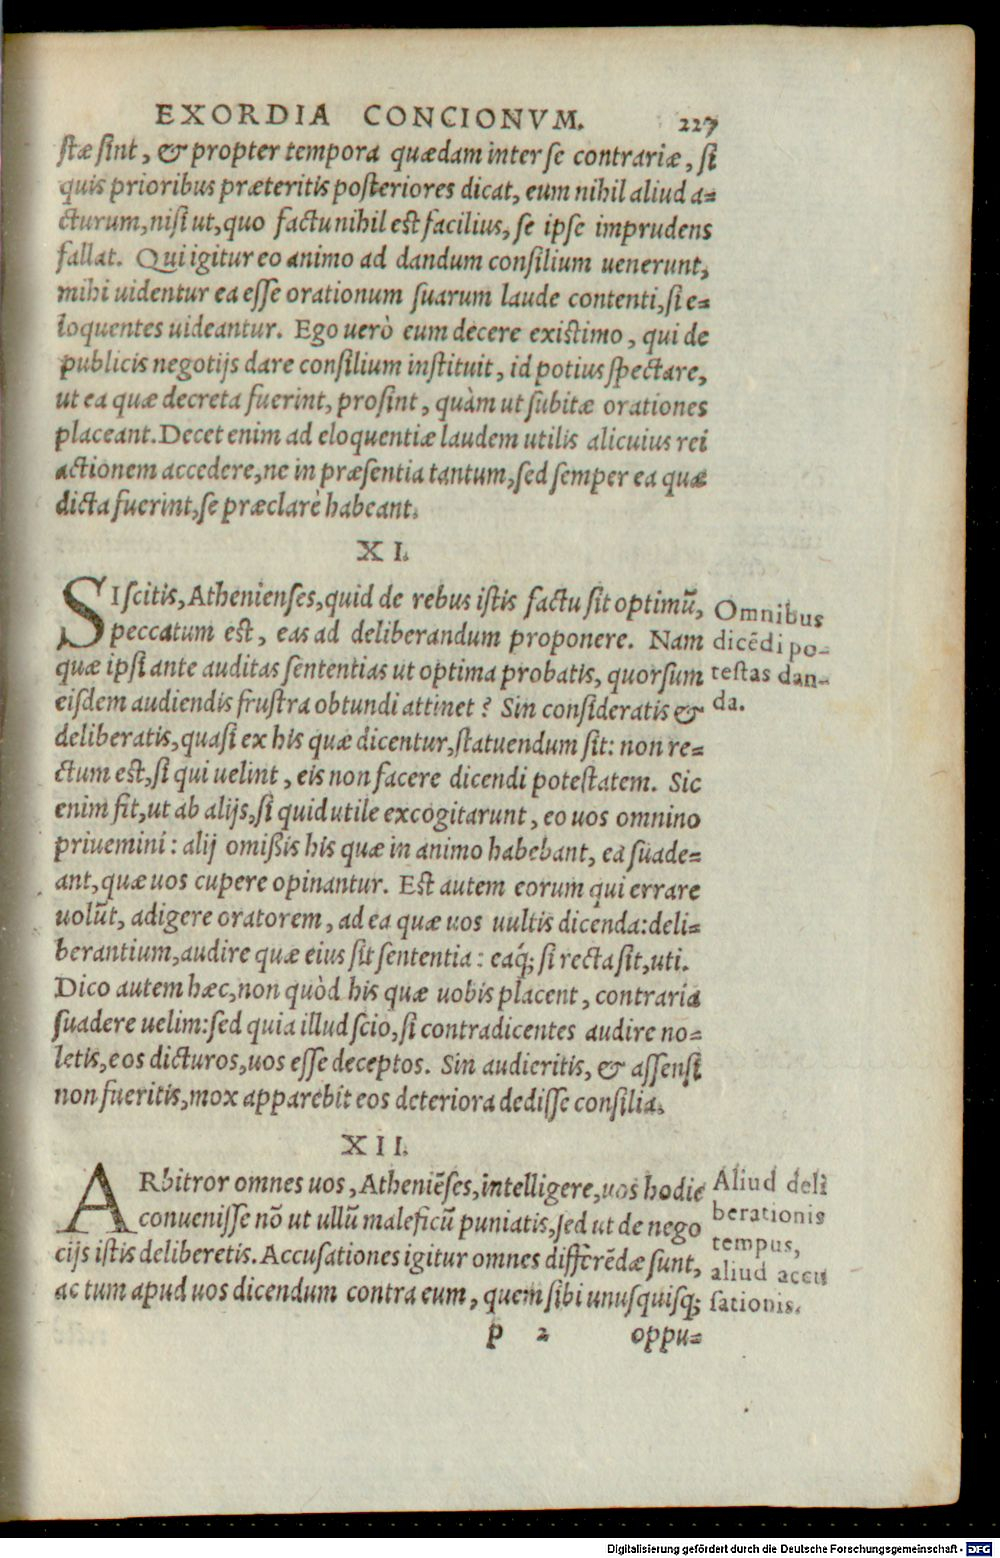 EXORDIA CONCIONVM. 227
stæ sint, & propter tempora quædam inter se contrariæ, si
quis prioribus præteritis posteriores dicat, eum nihil aliud a=
cturum, nisi ut, quo factu nihil est facilius, se ipse imprudens
fallat. Qui igitur eo animo ad dandum consilium uenerunt,
mihi uidentur ea esse orationum suarum laude contenti, si e=
loquentes uideantur. Ego uerò eum decere existimo, qui de
publicis negotijs dare consilium instituit, id potius spectare,
ut ea quæ decreta fuerint, prosint, quàm ut subitæ orationes
placeant. Decet enim ad eloquentiæ laudem utilis alicuius rei
actionem accedere, ne in præsentia tantum, sed semper ea quæ
dicta fuerint, se præclarè habeant.
XI.
SI scitis, Athenienses, quid de rebus istis factu sit optimū,
peccatum est, eas ad deliberandum proponere. Nam
quæ ipsi ante auditas sententias ut optima probatis, quorsum
eisdem audiendis frustra obtundi attinet? Sin consideratis &
deliberatis, quasi ex his quæ dicentur, statuendum sit: non re=
ctum est, si qui uelint, eis non facere dicendi potestatem. Sic
enim fit, ut ab alijs, si quid utile excogitarunt, eo uos omnino
priuemini: alij omißis his quæ in animo habebant, ea suade=
ant, quæ uos cupere opinantur. Est autem eorum qui errare
uolūt, adigere oratorem, ad ea quæ uos uultis dicenda: deli=
berantium, audire quæ eius sit sententia: eaq́; si recta sit, uti.
Dico autem hæc, non quòd his quæ uobis placent, contraria
suadere uelim: sed quia illud scio, si contradicentes audire no=
letis, eos dicturos, uos esse deceptos. Sin audieritis, & assensi
non fueritis, mox apparebit eos deteriora dedisse consilia.
Omnibus
dicēdi po-
testas dan-
da.
XII.
ARbitror omnes uos, Atheniēses, intelligere, uos hodie
conuenisse nō ut ullū maleficū puniatis, sed ut de nego
cijs istis deliberetis. Accusationes igitur omnes differēdæ sunt,
ac tum apud uos dicendum contra eum, quem sibi unusquisq;
Aliud deli
berationis
tempus,
aliud accu
sationis.
p 2 oppu=
Digitalisierung gefördert durch die Deutsche Forschungsgemeinschaft - DFG